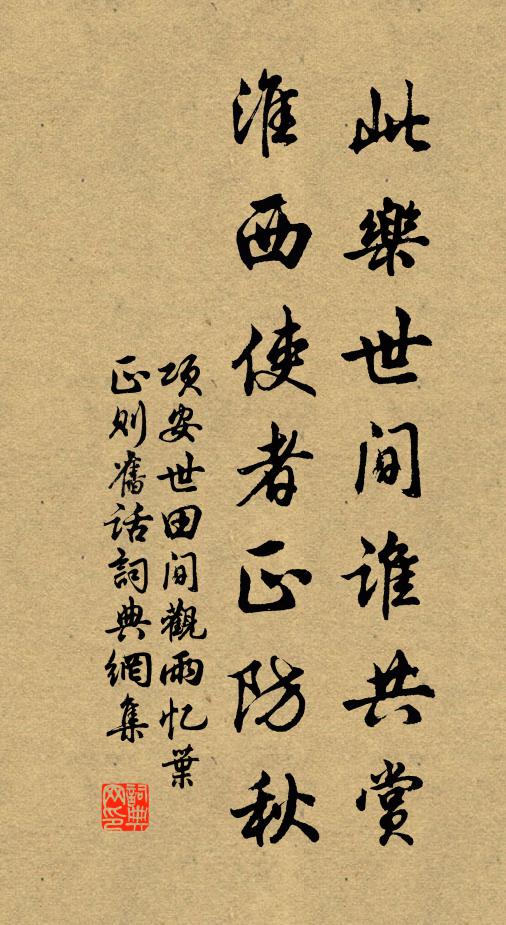 此樂世間誰共賞
淮西使者正防秋
項安世田間觀雨忆葉
正则舊話詞典網集
詞典网印